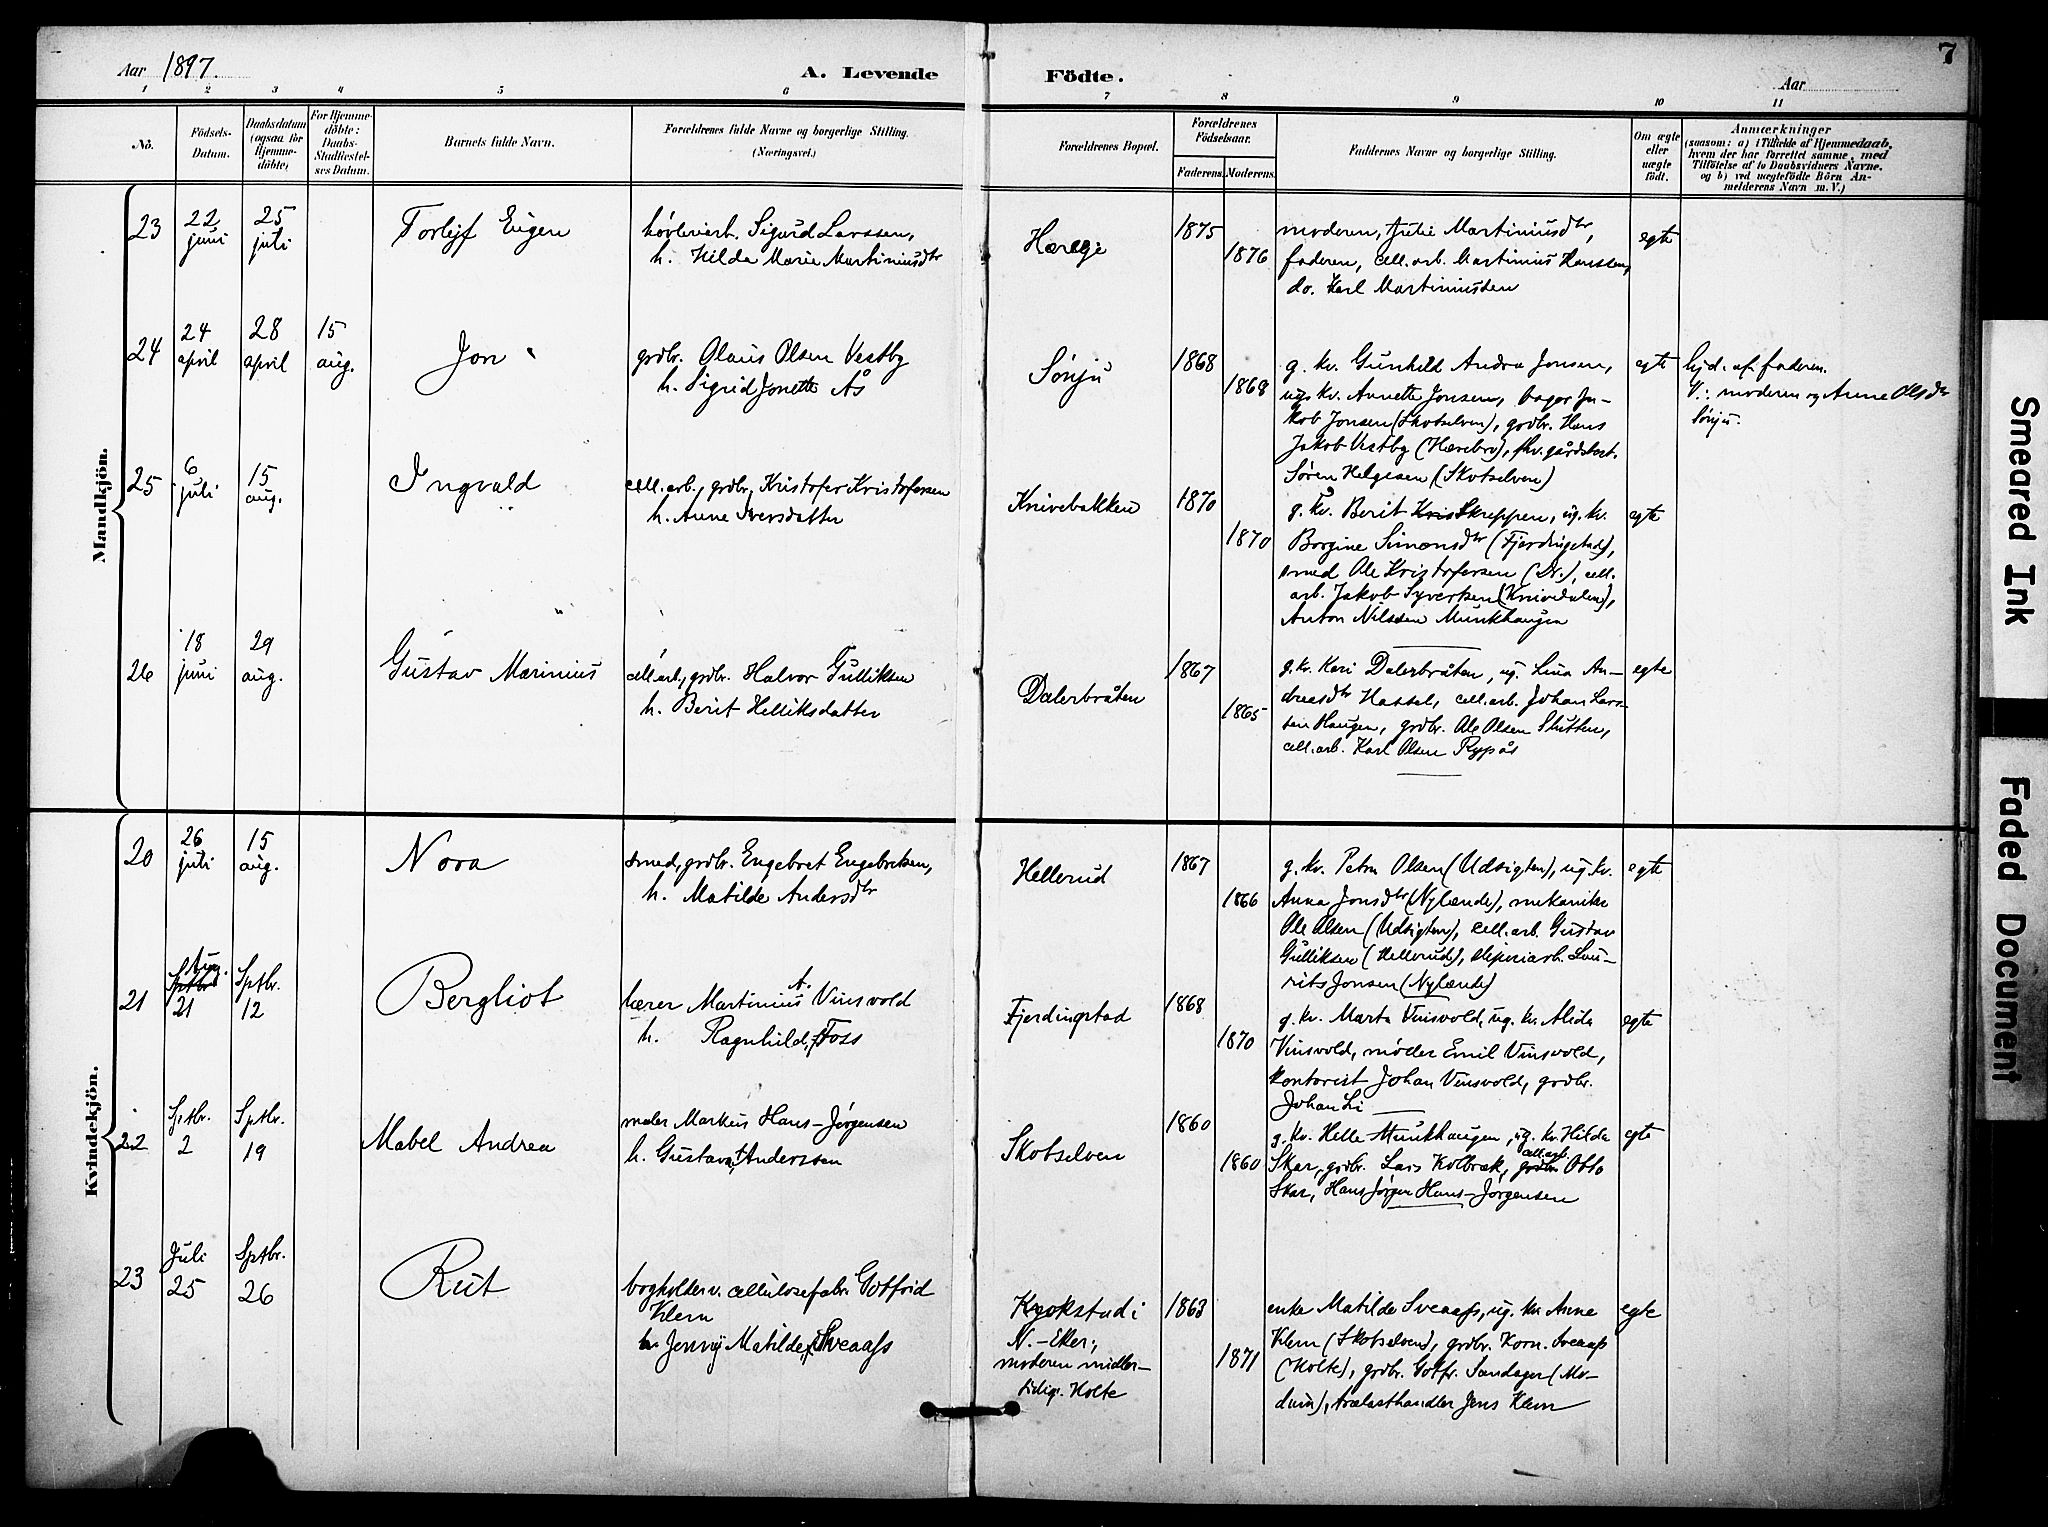 Aar 1897.
A. Levende Födte.
Aar
7
1 2 3 4 5 6 7 8 9 10 11
No.
Födsels-Datum.
Daabsdatum (ogsaa for Hjemme-döbte)
For Hjemme-döbte: Daabs-Stadfæstel-ses Datum.
Barnets fulde Navn.
Forældrenes fulde Navne og borgerlige Stilling. (Næringsvei.)
Forældrenes Bopæl.
Forældrenes Födselsaar.
Faderens. Moderens.
Faddernes Navne og borgerlige Stilling.
Om ægte eller uægte födt.
Anmærkninger
(saasom: a) i Tilfælde af Hjemmedaab,
hvem der har forrettet samme, med
Tilföielse af to Daabsvidners Navne,
og b) ved uægtefödte Börn An-
melderens Navn m. V.)
Mandkjön.
23 22 juni 25 juli
Torleif Eugen
høvleriarb. Sigurd Larssen,
h. Hilda Marie Martiniusdtr
Hærege
1875
1876
moderen, Julie Martiniusdtr,
faderen, cell.arb. Martinius Hanssen,
do. Karl Martiniussen
egte
24 24 april 28 april 15 aug.
Jon
grdbr. Olaus Olsen Vestby
h. Sigrid Jonette Ås
Sønju
1868
1868
g. kv. Gunhild Andra Jonsen,
ug. kv. Annette Jonsen, bager Ja-
kob Jonsen (Skotselven), grdbr. Hans
Jakob Vestby (Hærebro), fhv. gårdbr.
Søren Helgesen (Skotselven)
egte
hjd. af faderen.
V.: moderen og Anne Olsdtr
Sønju.
25 6 juli 15 aug.
Ingvald
cell.arb., grdbr. Kristofer Kristofersen
h. Anne Iversdatter
Knivebakken
1870
1870
g. kv. Berit Kris Skreppen, ug. kv.
Borgine Simensdtr (Fjerdingstad),
smed Ole Kristofersen (Dr.), cell.
arb. Jakob Syversen (Knivedalen),
Anton Nilssen Munkhaugen
egte
26 18 juni 29 aug.
Gustav Marinius
cell.arb., grdbr. Halvor Gulliksen
h. Berit Helliksdatter
Dalerbråten
1867
1865
g. kv. Kari Dalerbråten, ug. Lina An-
dreasdtr Hassel, cell.arb. Johan Lars-
sen Haugen, grdbr. Ole Olsen Slutten,
cell.arb. Karl Olsen Rypås
egte
Kvindekjön.
20 26 juli 15 aug.
Nora
smed, grdbr. Engebret Engebretsen,
h. Matilde Andersdtr
Hellerud
1867
1866
g. kv. Petra Olsen (Udsigten), ug. kv.
Anna Jonsdtr (Nylænde), mekaniker
Ole Olsen (Udsigten), cell.arb. Gustav
Gulliksen (Hellerud), sliperiarb. Lau-
rits Jonsen (Nylænde)
egte
21 Aug. Sptbr. 21 Sptbr. 12
Bergliot
lærer Martinius A. Vinsvold
h. Ragnhild, f. Foss
Fjerdingstad
1868
1870
g. kv. Marta Vinsvold, ug. kv. Alida
Vinsvold, møller Emil Vinsvold,
kontorist Johan Vinsvold, grdbr.
Johan Li
egte
22 Sptbr. 2 Sptbr. 19
Mabel Andrea
maler Markus Hans-Jørgensen
h. Gustava, f. Anderssen
Skotselven
1860
1860
g. kv. Helle Munkhaugen, ug. kv. Hilda
Skar, grdbr. Lars Kolbræk, grdbr. cell.arb. Otto
Skar, Hans Jørgen Hans-Jørgensen
egte
23 Juli 25 Sptbr. 26
Rut
bogholder v. cellulosefabr. Gotfrid
Klem
h. Jenny Matilde, f. Sveaass
Krokstad i
N.-Eker;
moderen midler-
tidig: Holte
1863
1871
enke Matilde Sveaass, ug. kv. Anna
Klem (Skotselven), grdbr. Korn. Sveaass
(Holte), grdbr. Gotfr. Sandager (Mo-
dum), trælasthandler Jens Klem
egte
Smeared Ink
Faded Document